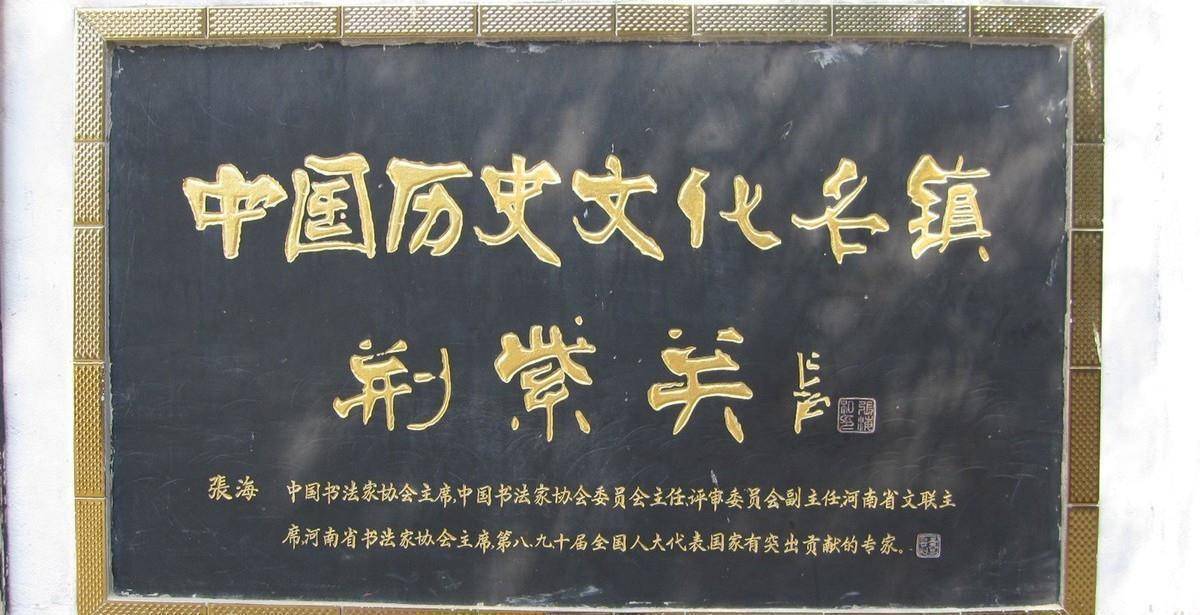 中国历史文化名镇
荆紫关
張海 中国书法家协会主席,中国书法家协会委员会主任,评审委员会副主任河南省文联主
席,河南省书法家协会主席,第八、九、十届全国人大代表,国家有突出贡献的专家。